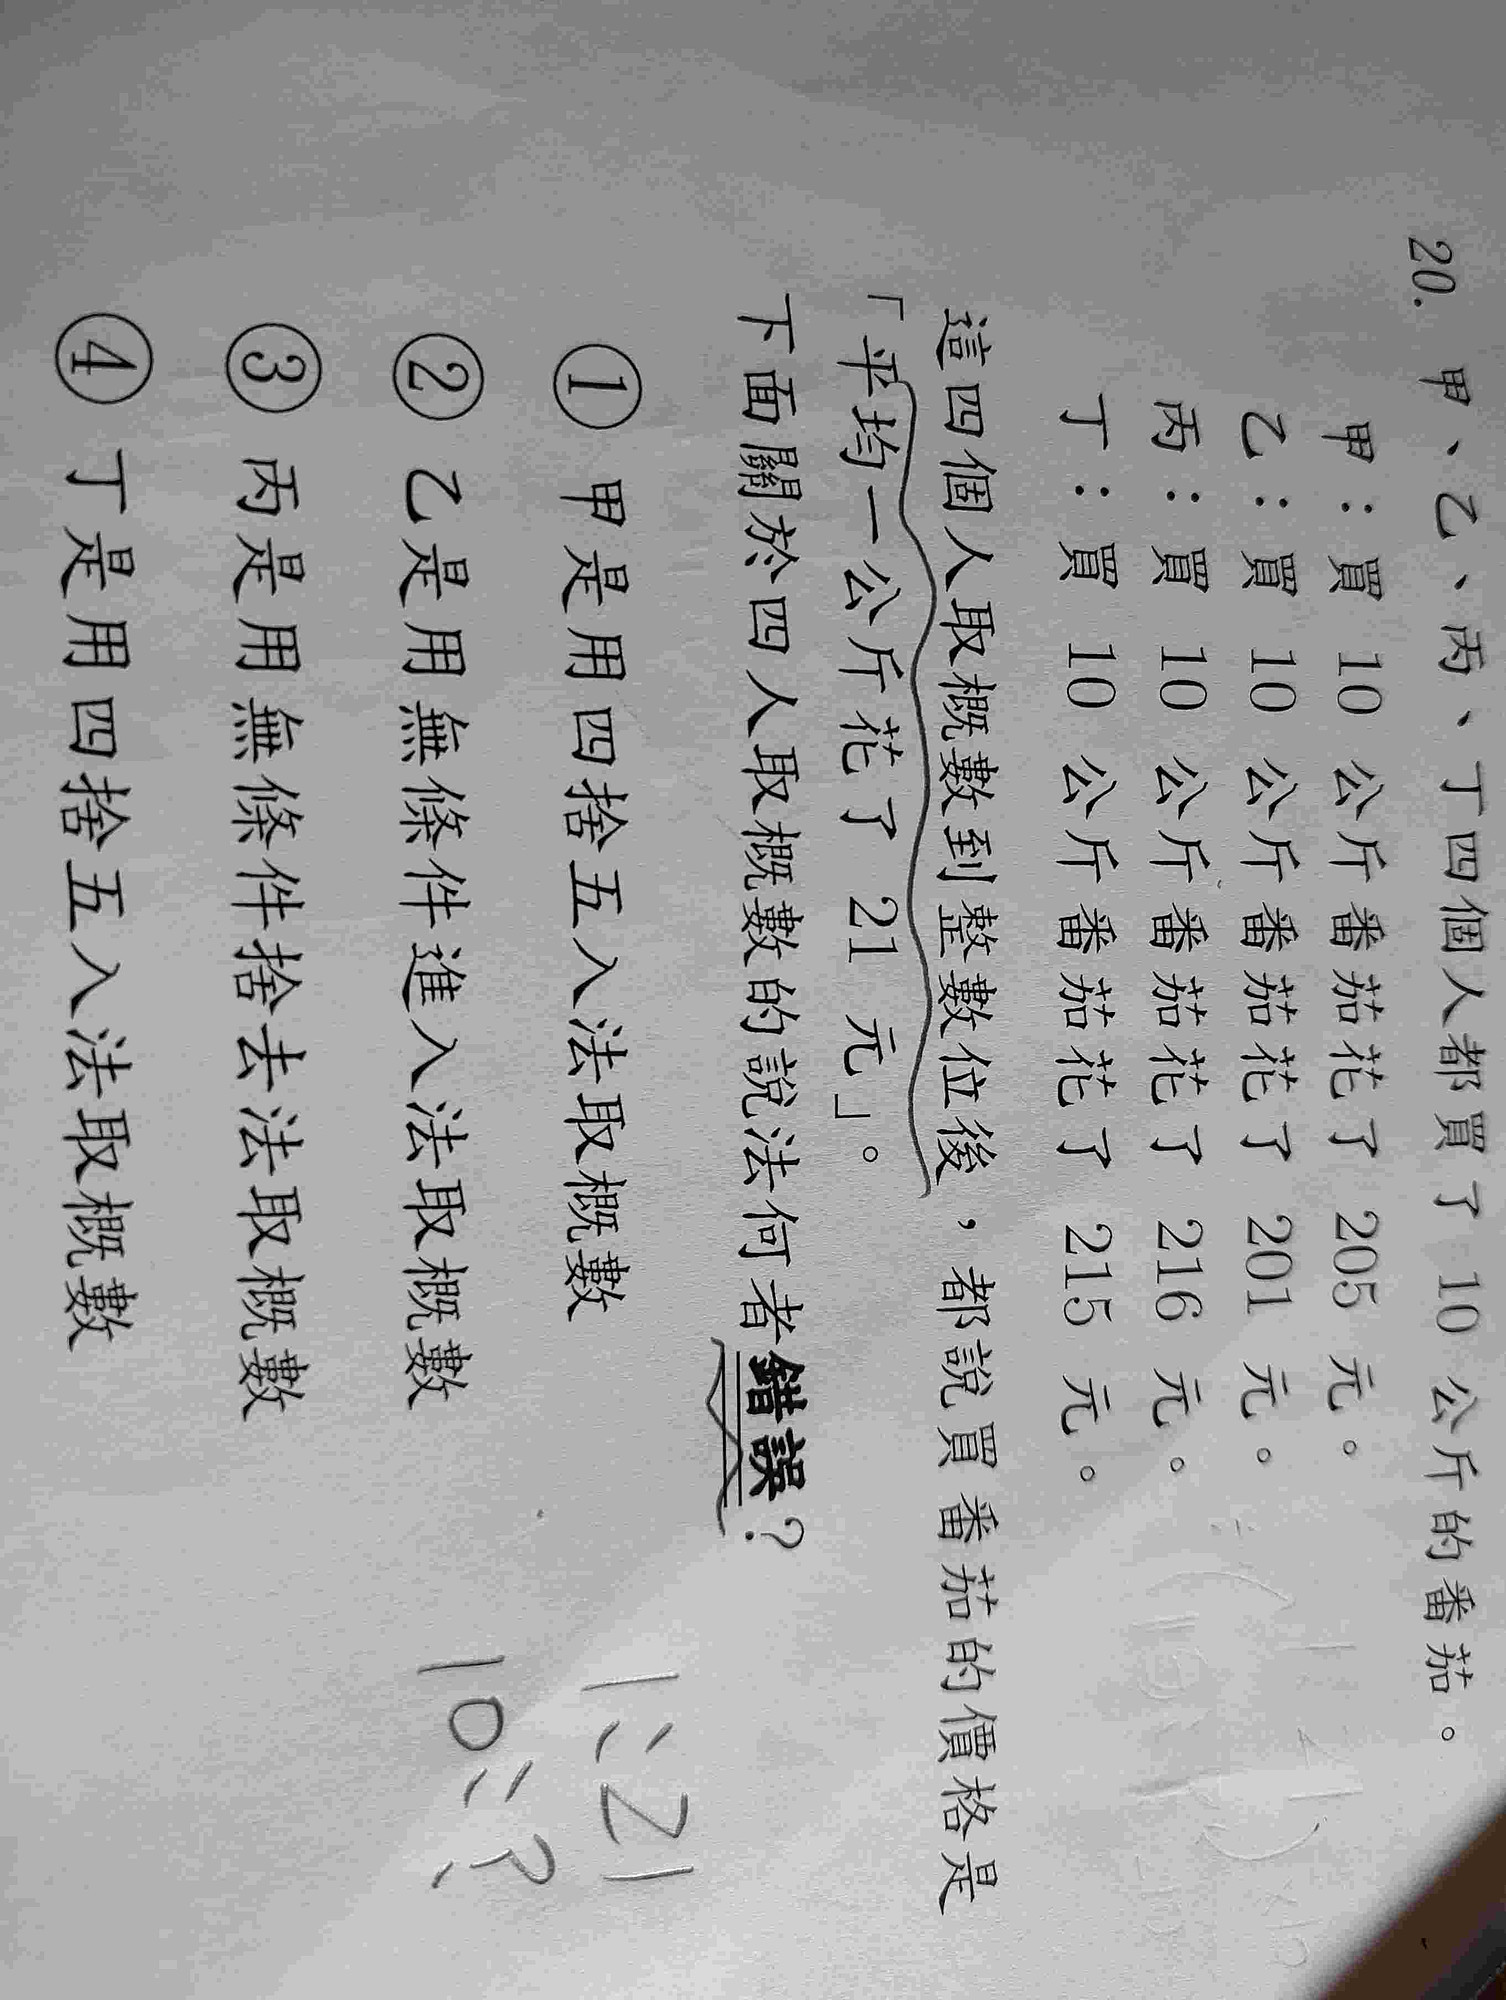 20. 甲、乙、丙、丁四個人都買了 10 公斤的番茄。
甲：買 10 公斤番茄花了 205 元。
乙：買 10 公斤番茄花了 201 元。
丙：買 10 公斤番茄花了 216 元。
丁：買 10 公斤番茄花了 215 元。
這四個人取概數到整數位後，都說買番茄的價格是
「平均一公斤花了 21 元」。
下面關於四人取概數的說法何者錯誤？
① 甲是用四捨五入法取概數
② 乙是用無條件進入法取概數
③ 丙是用無條件捨去法取概數
④ 丁是用四捨五入法取概數
1:21
10:?